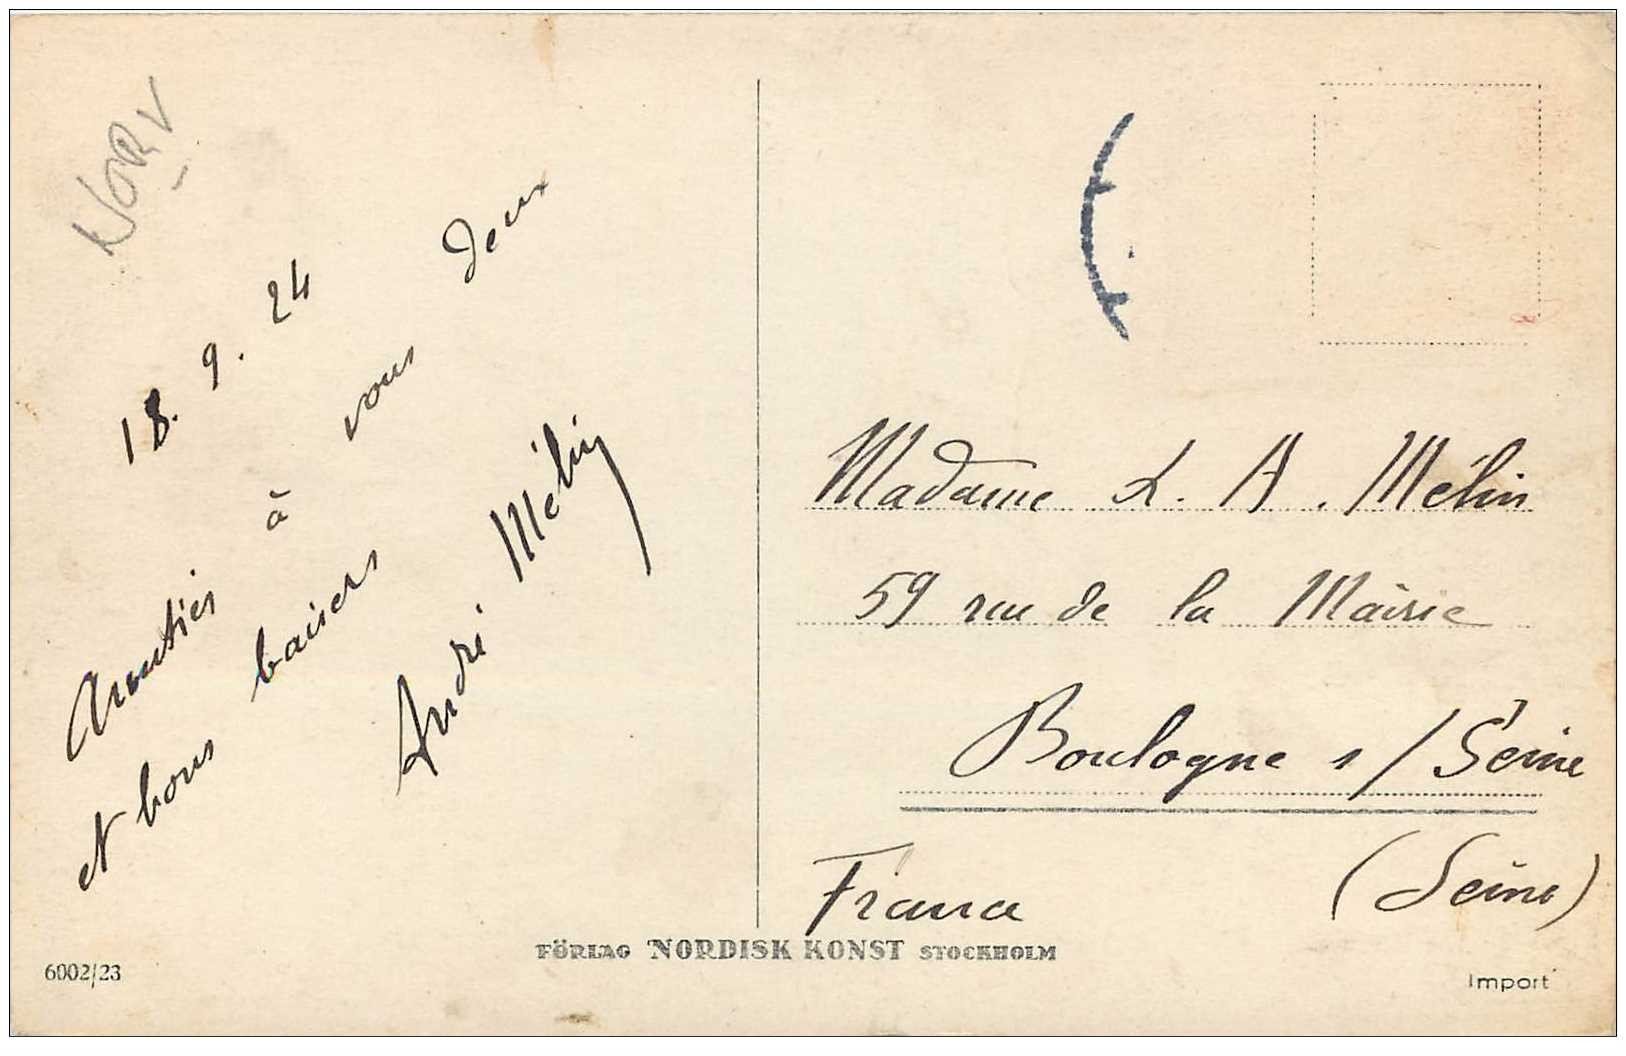 NORV
18. 9. 24
Amitiés à vous deux
et bons baisers
André Mélin
Madame L. A. Mélin
59 rue de la Mairie
Boulogne s/Seine
(Seine)
France
FÖRLAG NORDISK KONST STOCKHOLM
6002/23
Import